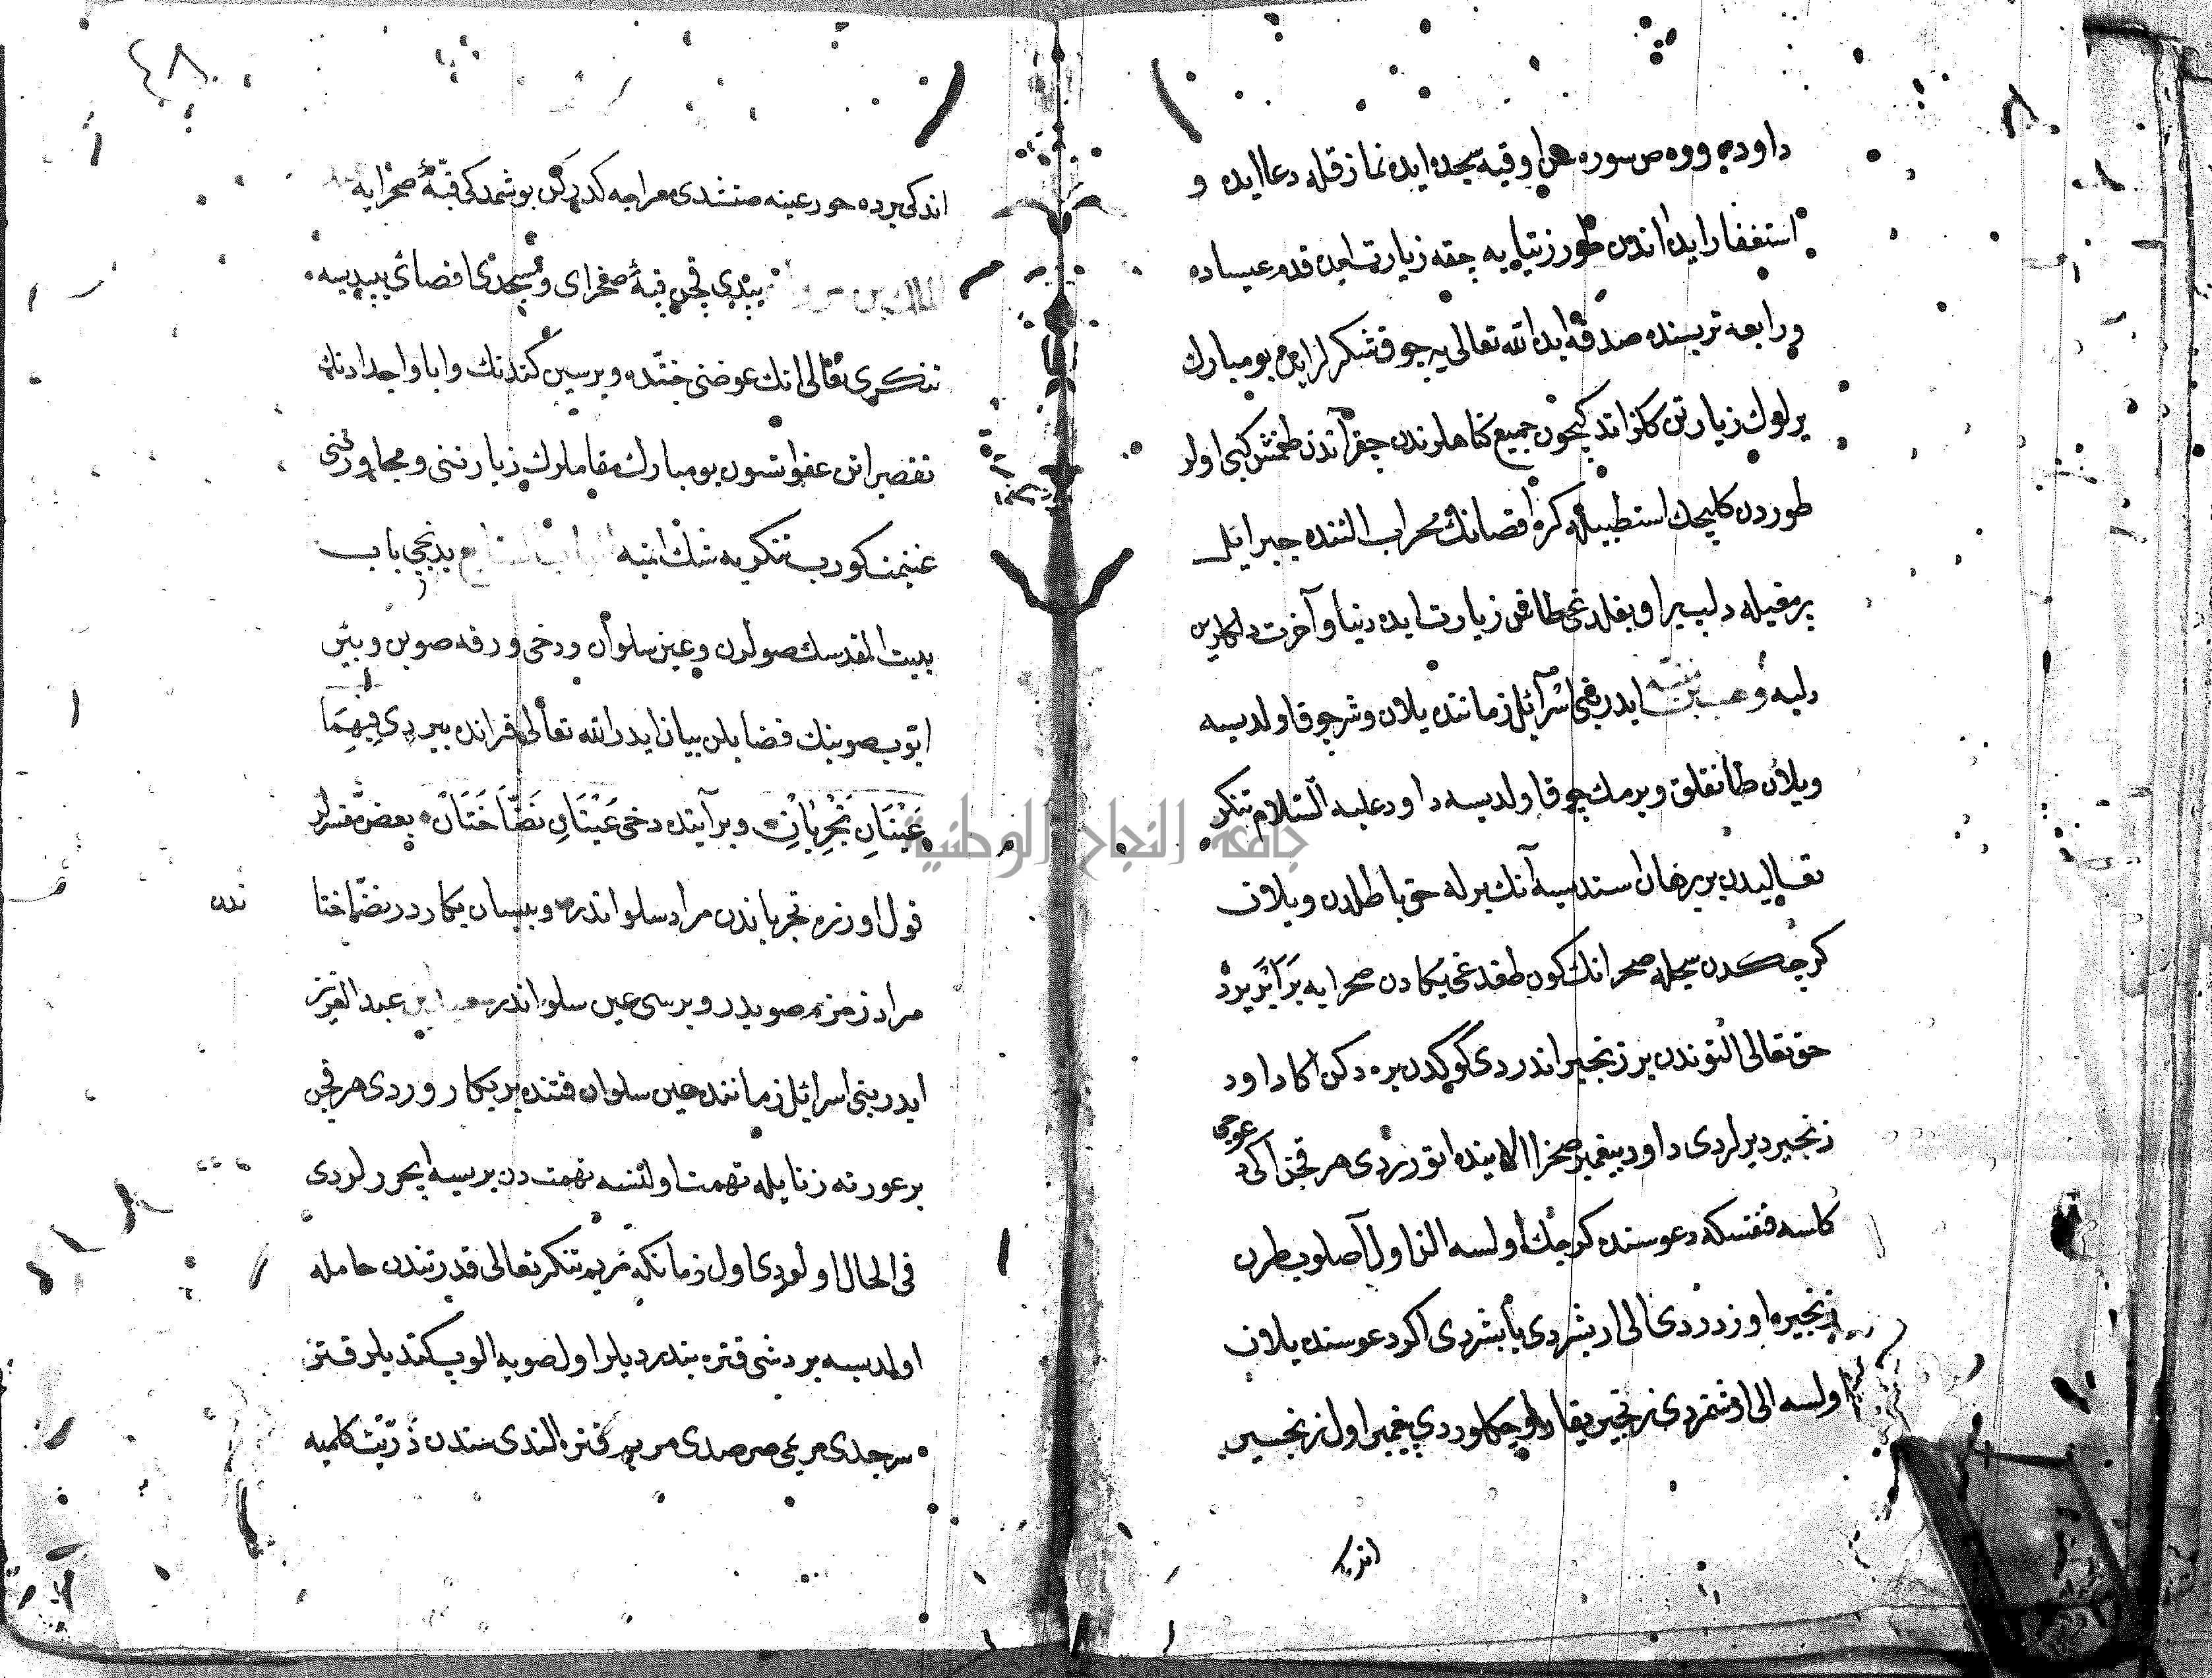 داوده ووه ص سوره سن اوقيه سجده ايده نماز قله دعا ايده و
استغفار ايده اندن طور زيتايه چقه زيارت ايده قدم عيساده
و رابعه تربسنده صدقه ايده الله تعالى يه چوق شكر لر ايده بو مبارك
يرلرك زيارتن كلزاتد كيچون جميع كناهلرندن چقر آندن طغمش كبى اولر
طوردن كليجك استطبيله كره اقصانك محراب التنده جبرائيل
پرمغيله دلب براو بغلدغى طاقى زيارت ايده دنيا و آخرت دلكلرين
دليه وهب بن منبه ايدر بنى اسرآئل زماننده يلان وشر چوق اولديسه
ويلان طانقلق ويرمك چوق اولديسه داود عليه السلام تنكر
تعاليدن بر برهان استديسه آنك برله حق باطلدن ويلان
كرچكدن سچيله صحرانك كون طغدغى يكادن صحرايه برابر يردن
حق تعالى التوندن بر زنجير اندردى كوكدن يره دكن اكا داود
زنجير ديرلردى داود پيغمبر صخرا الايينده اتوررردى هر قچن اكى د
عوجى
كلسه قنقسكه دعوسنده كرچك اولسه الن اول آصلوب طرن
زنجيره اوزدردى الى ارشردى يابشردى اكر دعوسنده يلان
اولسه الى ارشمزدى زنجير يقارو چكلوردى پيغمبر اول زنجيرين
اندكى
٤٨
اندكى يرده حور عينه صنشدى معراجه كدركن بوشمدكى قبّۀ صخرايه
يپدى قچن قبۀ صخراى و مسجدى اقصائى يپديسه
تنكرى تعالى انك عوضنى جنتده ويرسين كندنك و ابا و اجدادنك
تقصيراتن عفو اتسون بو مبارك مقاملرك زيارتنى و مجاورتنى
غنيمت كورب تنكريه شكر ايتيه الباب السابع يدنجى باب
بيت المقدسك صولرن و عين سلوان و دخى ورقه صوين و بئر
ايوب صوينك فضايلن بيان ايدر الله تعالى قرانده بيردى فِيهِمَا
عَيْنَانِ تَجْرِيَانِ و بر آيتده دخى عَيْنَانِ نَضَّاخَتَانْ بعض مفسرلر
قول اوزره تجرياندن مراد سلواندر و بيسان پكاردر نضّاختا
ندن
مراد زمزم صويدر و برسى عين سلواندر سعيد بن عبد العزيز
ايدر بنى اسرائل زماننده عين سلوان قتنده بر پكار وردى هر قچن
بر عورته زنايله تهمت اولنسه تهمت دن بريسه ايچرلردى
فى الحال اولوردى اول زمانكه مريم تنكر تعالى قدرتندن حامله
اولديسه بر دشى قتره بندرديلر اول صويه الوب كتديلر قتر
سرجدى مريمى صرصدى مريم قتره الندى سندن ذرّيت كلميه
جامعة النجاح الوطنية